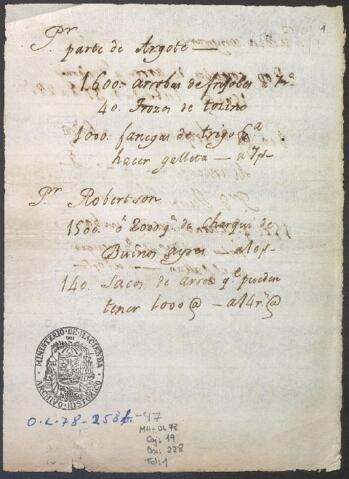 1
Pr.
parte de Argote —
1600. arrobas de frijoles
40. Trozos de tocino
1000. fanegas de trigo pa.
hacer galleta — a 7 ps
Pr. Robertson
1500. ó 2000 qs. de Charqui de
Buenos Ayres — a 10 ps
140. Sacos de arros qe. pueden
tener 1000 @ — a 14 rs. @
MINISTERIO·DE·HACIENDA
ARCHIVO HISTORICO
O.L. 78-258f.-47
MH-OL 78
Caj. 19
Doc. 228
Fol. 1